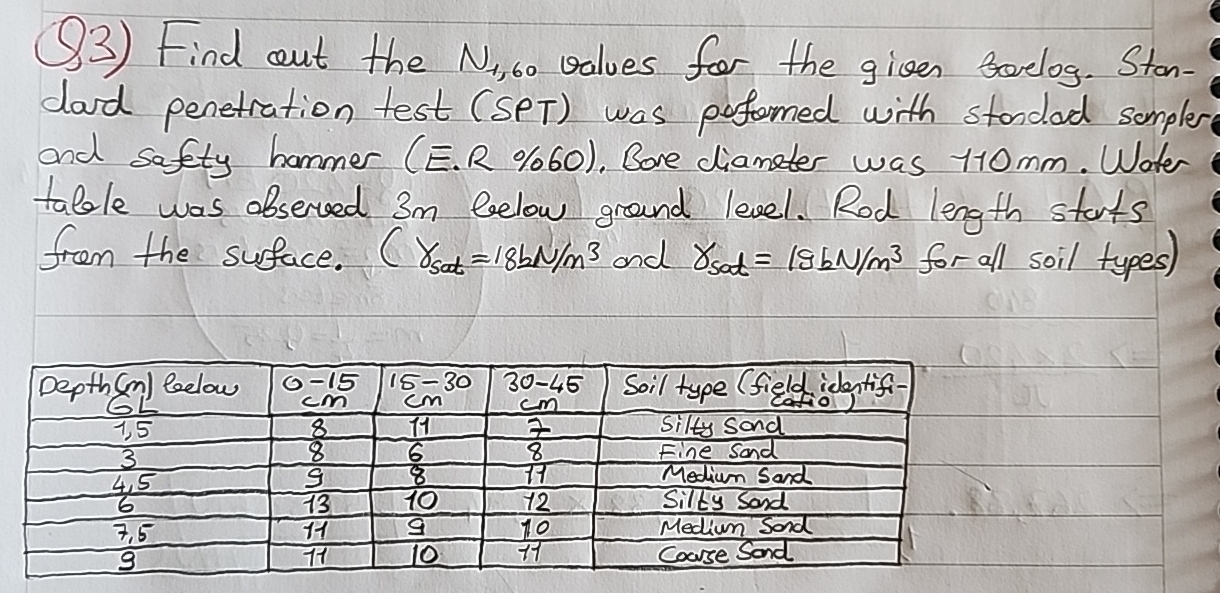 Q3) Find out the N1,60 values for the given borelog. Stan-
dard penetration test (SPT) was peformed with standad sampler
and safety hammer (E.R %60). Bore diameter was 110mm. Water
table was observed 3m below ground level. Rod length starts
from the surface. (γsat=18kN/m³ and γsat= 19kN/m³ for all soil types)
Depth(m) below GL 0-15 cm 15-30 cm 30-45 cm Soil type (field identifi-catio)
1,5 8 11 7 Silty Sand
3 8 6 8 Fine Sand
4,5 9 8 11 Medium Sand
6 13 10 12 Silty Sand
7,5 11 9 10 Medium Sand
9 11 10 11 Coarse Sand